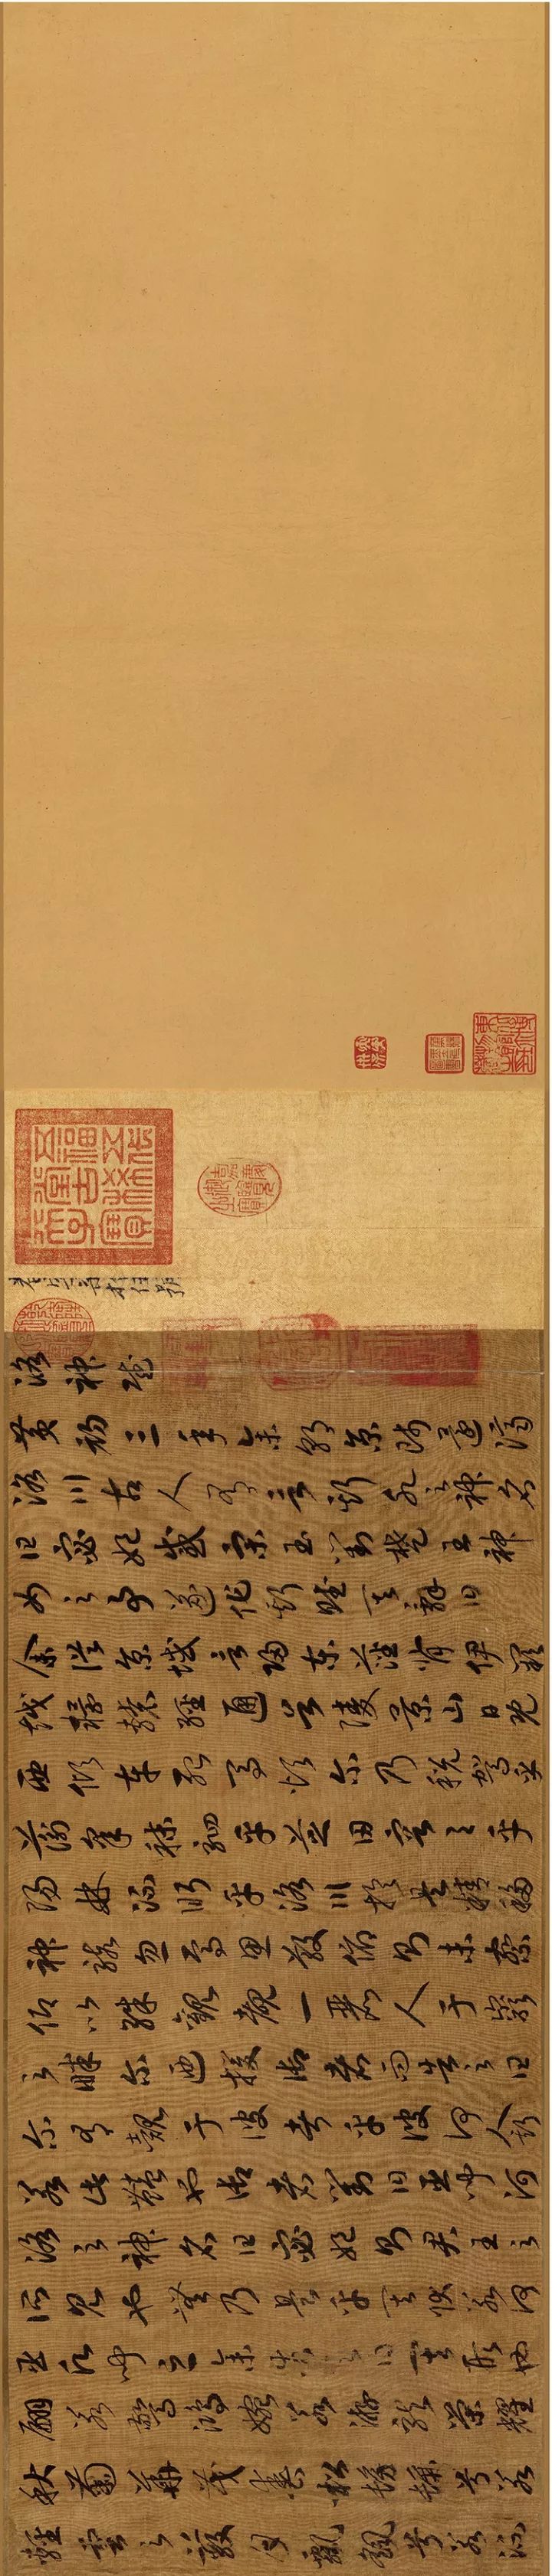 五福五代堂古稀天子寶
洛神賦
黄初三年余朝京師還濟
洛川古人有言斯水之神名
曰宓妃感宋玉對楚王神
女之事遂作斯賦其辭曰
余從京域言歸東藩背伊闕
越轘轅經通谷陵景山日既
西傾車殆馬煩爾乃税駕乎
蘅皋秣駟乎芝田容與乎
陽林流眄乎洛川於是精移
神駭忽焉思散俯則未察
仰以殊觀覩一麗人于巖
之畔爾迺援御者而告之曰
爾有覿于彼者乎彼何人斯
若此豔也御者對曰臣聞河
洛之神名曰宓妃則君王之
所見也無乃是乎其狀若何
臣願聞之余告之曰其形也
翩若驚鴻婉若遊龍榮曜
秋菊華茂春松髣髴兮若
輕雲之蔽月飄颻兮若流